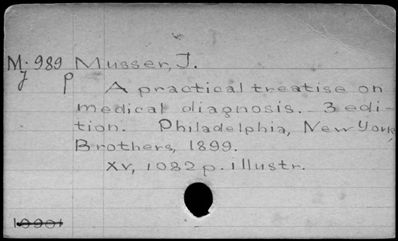 M. 989 Musser, J.
y p A practical treatise on
medical diagnosis. 3 edi-
tion. Philadelphia, New York,
Brothers, 1899.
XV, 1082 p. illustr.